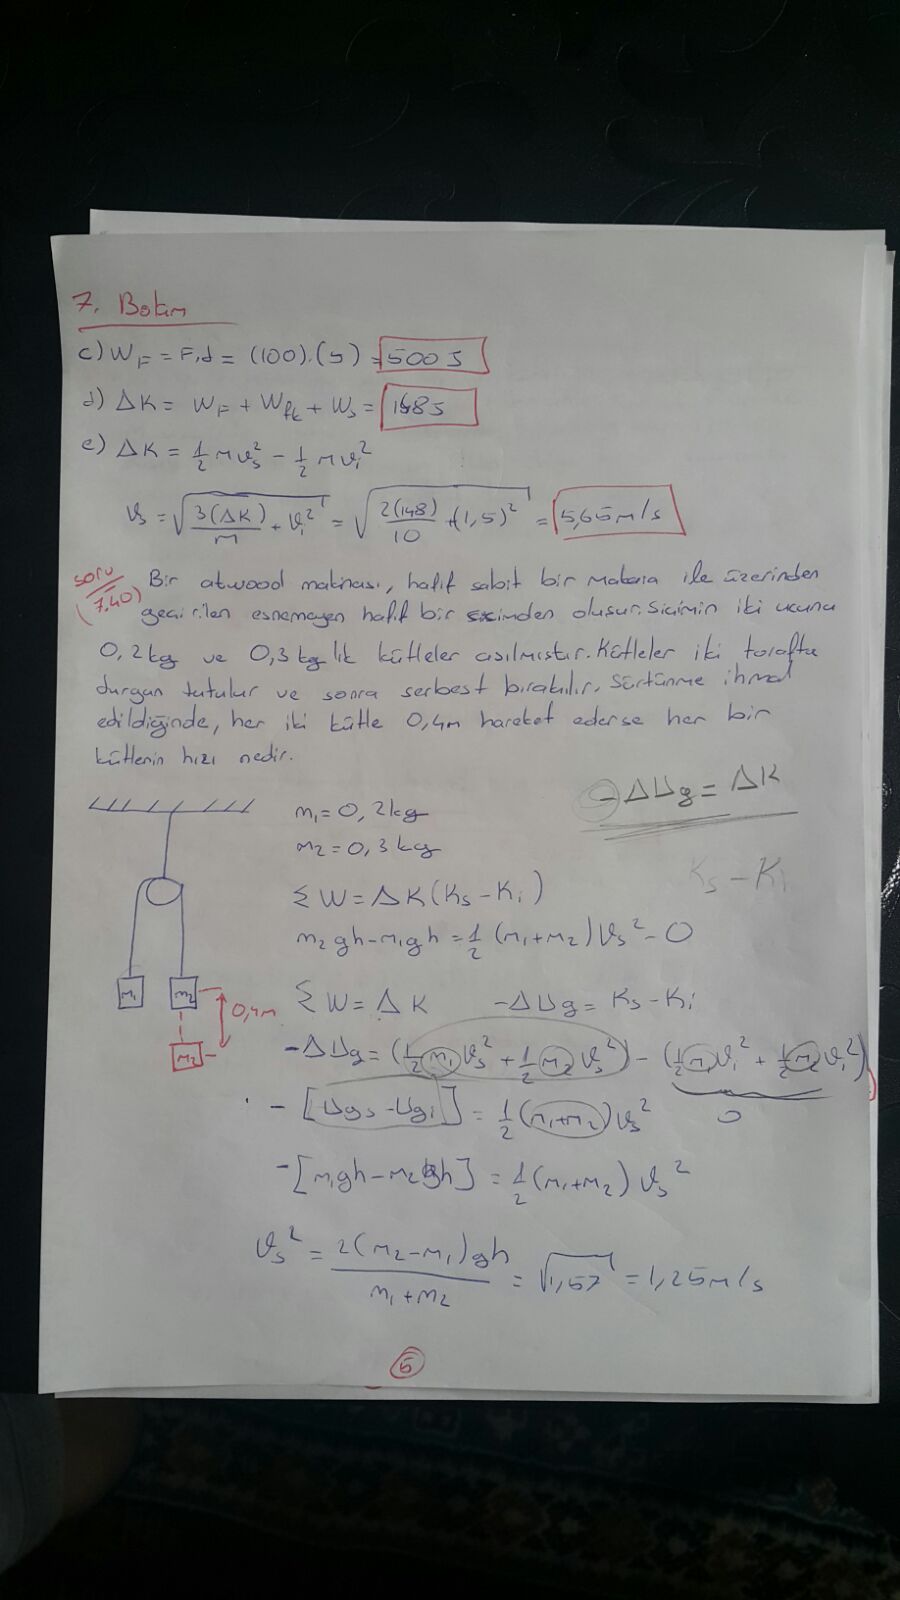 7. Bölüm
c) W_F = F.d = (100).(5) = 500 J
d) ΔK = W_F + W_fk + W_s = 148 J
e) ΔK = 1/2 m v_s² - 1/2 m v_i²
v_s = √(3(ΔK)/m + v_i²) = √(2(148)/10 + (1,5)²) = 5,65 m/s
soru (7.40) Bir atwood makinası, hafif sabit bir makara ile üzerinden
geçirilen esnemeyen hafif bir sicimden oluşur. Sicimin iki ucuna
0,2 kg ve 0,3 kg lık kütleler asılmıştır. Kütleler iki tarafta
durgun tutulur ve sonra serbest bırakılır. Sürtünme ihmal
edildiğinde, her iki kütle 0,4m hareket ederse her bir
kütlenin hızı nedir.
-ΔUg = ΔK
m₁ = 0,2 kg
m₂ = 0,3 kg
Ks - Ki
ΣW = ΔK (Ks - Ki)
m₂gh - m₁gh = 1/2 (m₁+m₂) v_s² - 0
m₁ m₂ 0,4m m₂
ΣW = ΔK -ΔUg = Ks - Ki
-ΔUg = (1/2 m₁ v_s² + 1/2 m₂ v_s²) - (1/2 m₁ v_i² + 1/2 m₂ v_i²)
0
- [Ugs - Ugi] = 1/2 (m₁+m₂) v_s²
- [m₁gh - m₂gh] = 1/2 (m₁+m₂) v_s²
v_s² = 2(m₂-m₁)gh / m₁+m₂ = √1,57 = 1,25 m/s
5